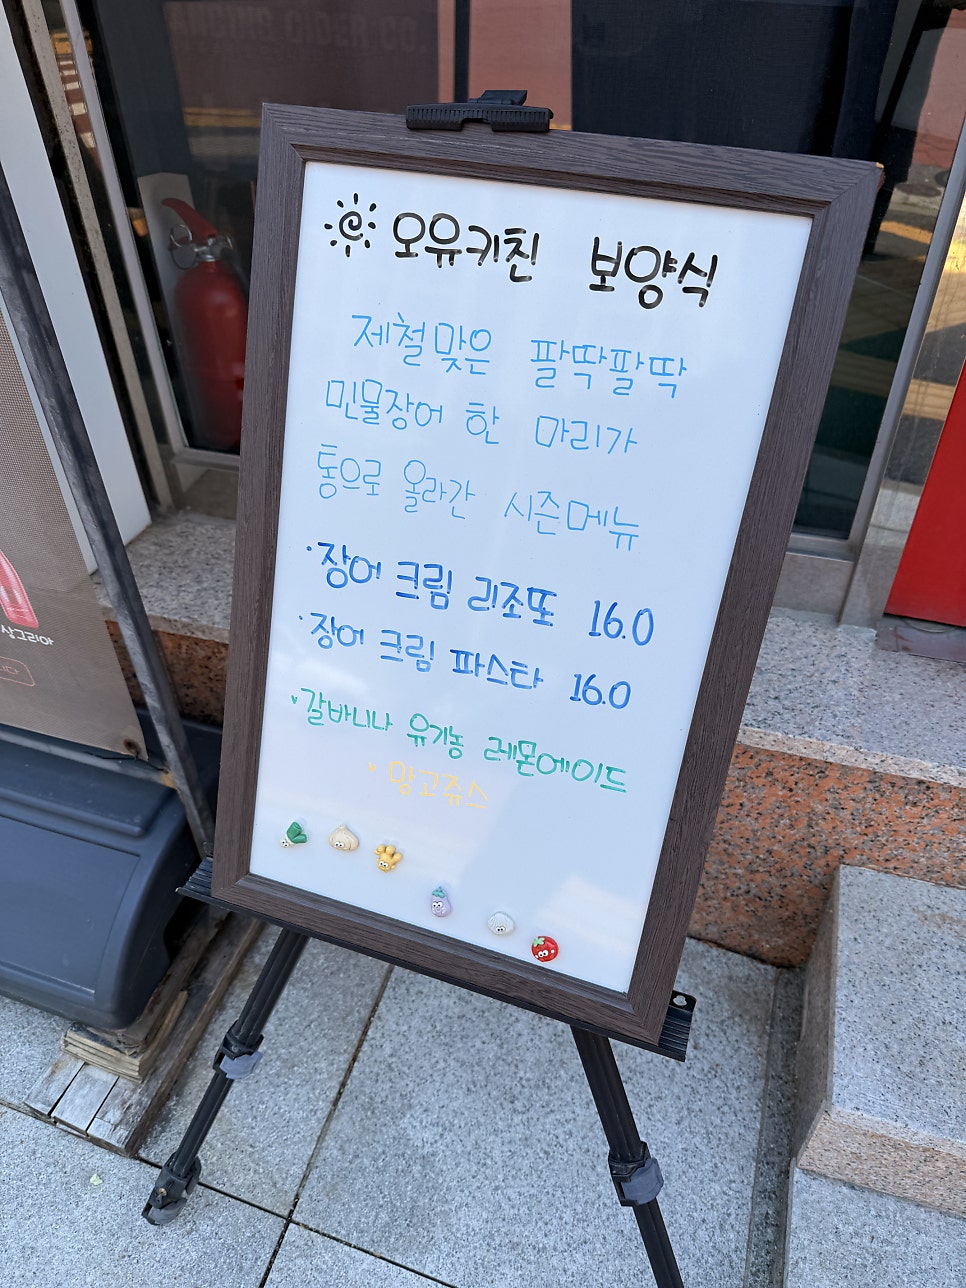 오유키친 보양식
제철맞은 팔딱팔딱
민물장어 한 마리가
통으로 올라간 시즌메뉴
·장어 크림 리조또 16.0
·장어 크림 파스타 16.0
갈바니나 유기농 레몬에이드
망고쥬스
상그리아